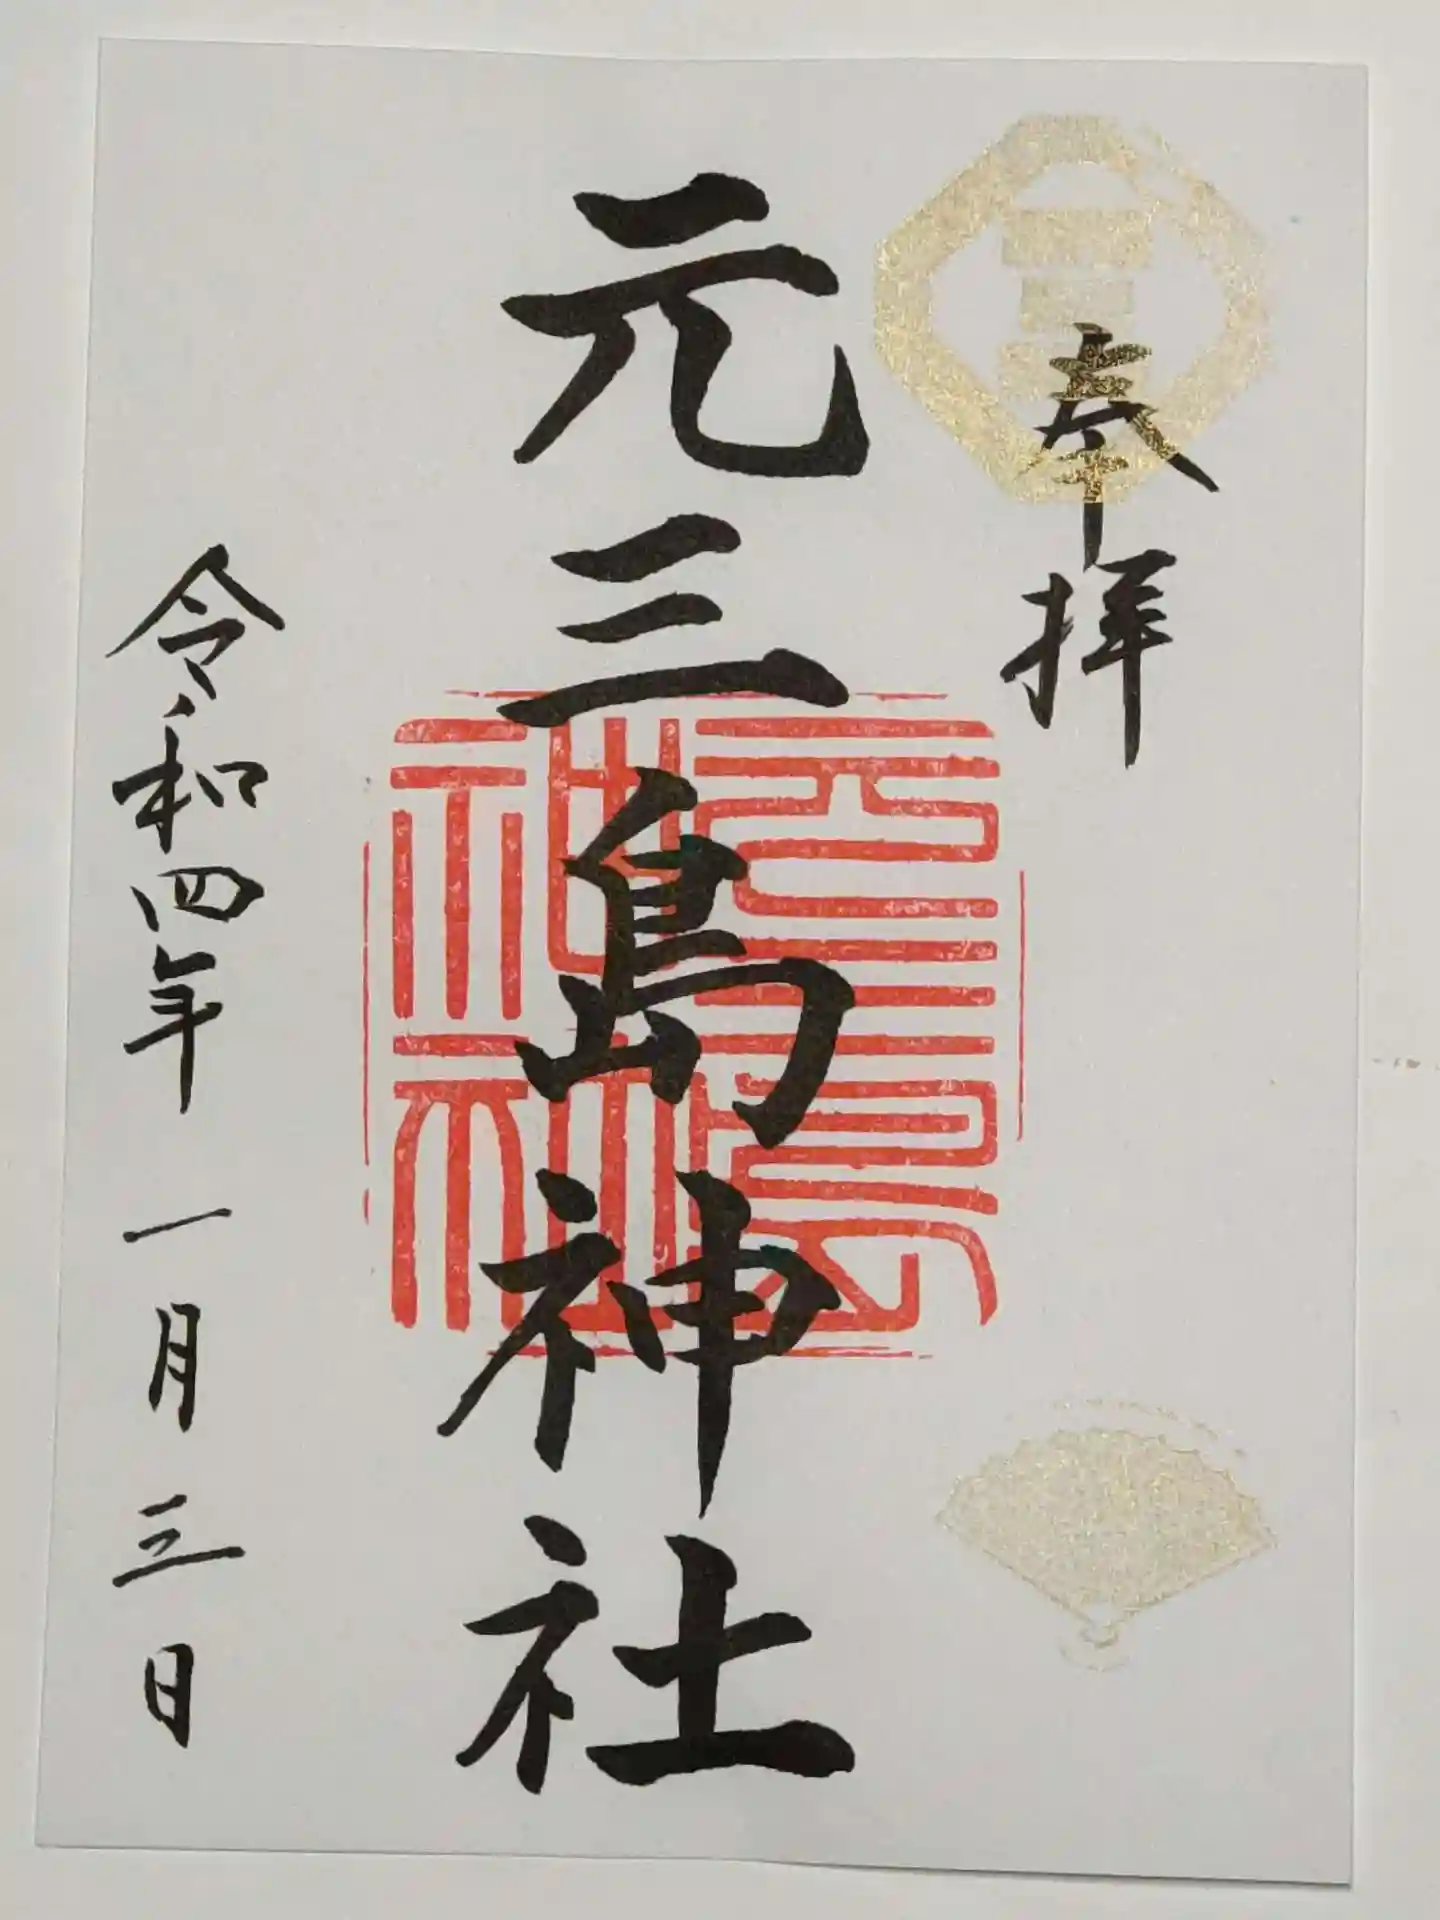 奉拝
元三島神社
元三島神社
令和四年 一月三日